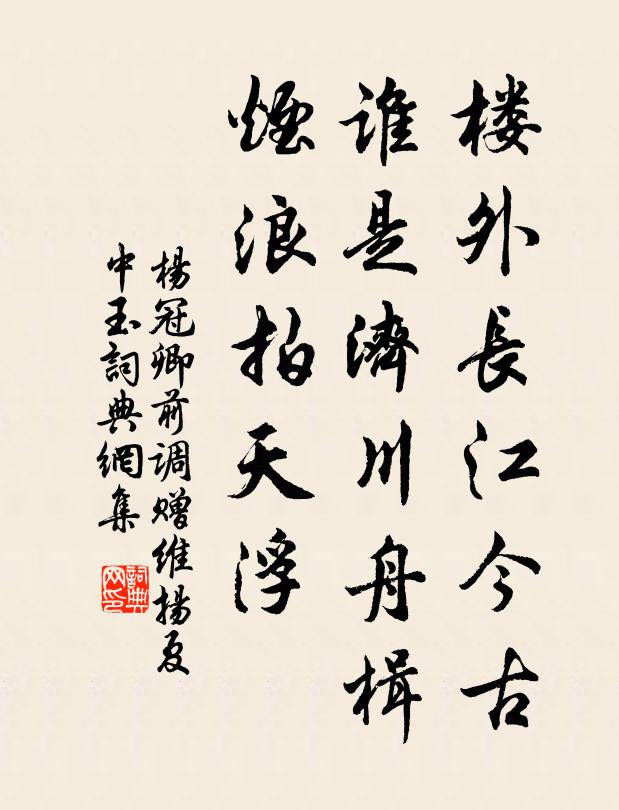 楼外長江今古
谁是濟川舟楫
煙浪拍天浮
楊冠卿前调赠维揚夏
中玉詞典網集
詞典网印